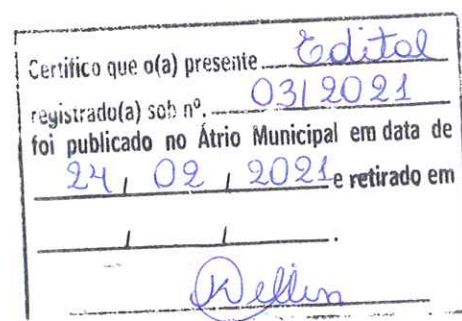 Certifico que o(a) presente Edital
registrado(a) sob nº. 03/2021
foi publicado no Átrio Municipal em data de
24 / 02 / 2021 e retirado em
/ / .